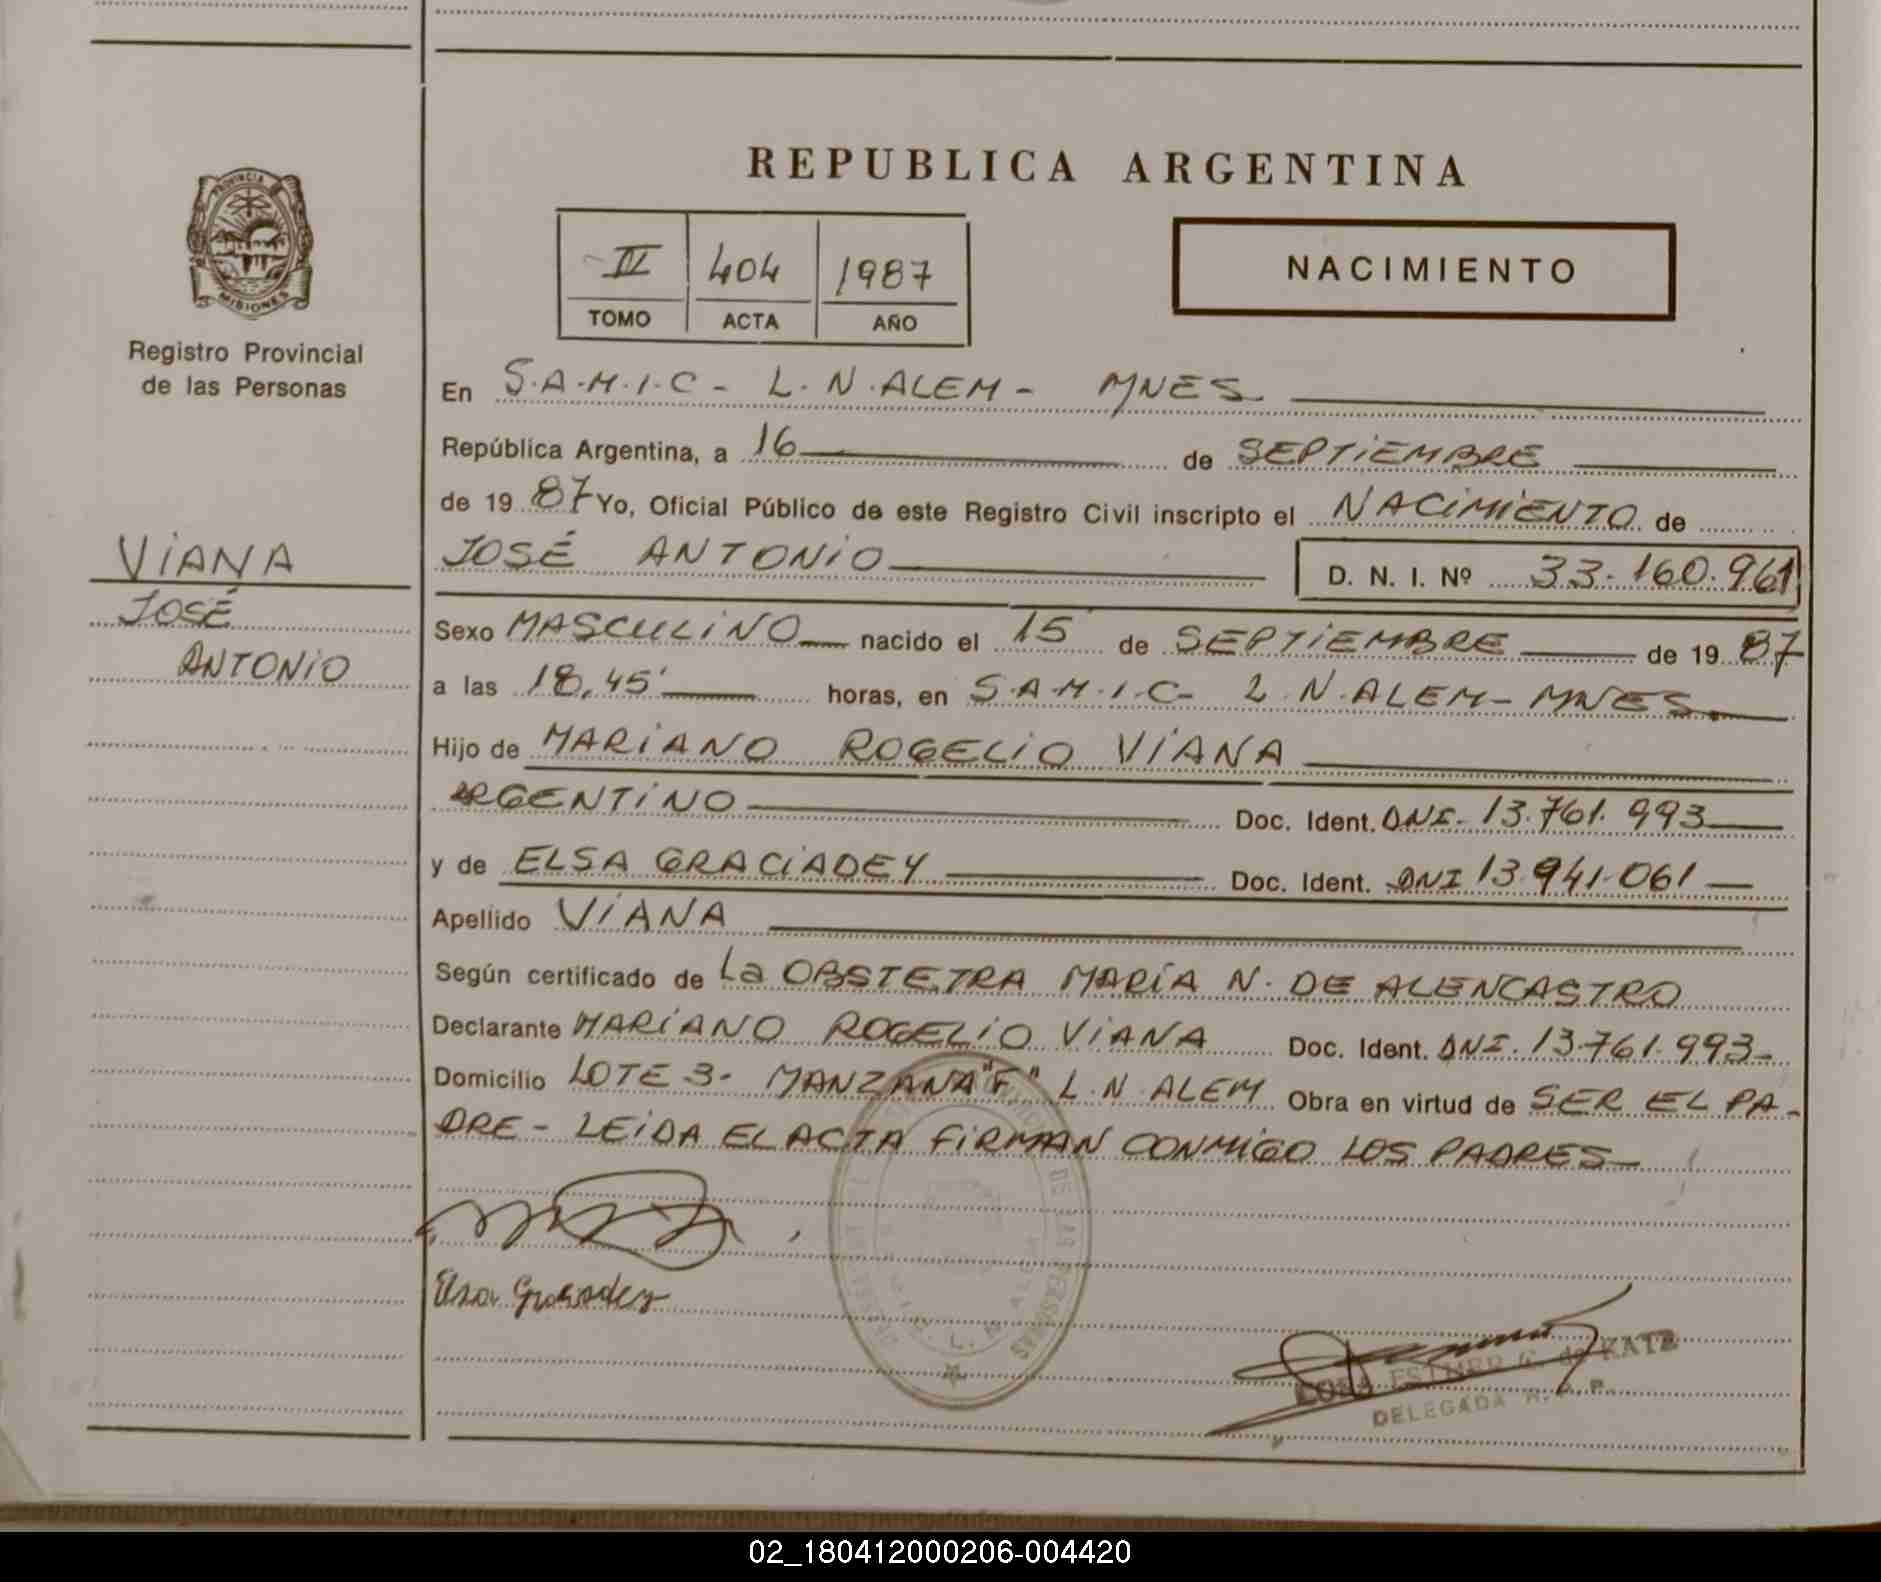 REPUBLICA ARGENTINA
PROVINCIA
MISIONES
Registro Provincial
de las Personas
VIANA
JOSÉ
ANTONIO
IV 404 1987
TOMO ACTA AÑO
NACIMIENTO
En S.A.M.I.C - L.N.ALEM - MNES
República Argentina, a 16 de SEPTIEMBRE
de 1987 Yo, Oficial Público de este Registro Civil inscripto el NACIMIENTO de
JOSÉ ANTONIO D. N. I. Nº 33.160.961
Sexo MASCULINO nacido el 15 de SEPTIEMBRE de 1987
a las 18,45' horas, en S.A.M.I.C- L.N.ALEM- MNES.
Hijo de MARIANO ROGELIO VIANA
ARGENTINO Doc. Ident. DNI- 13.761.993
y de ELSA GRACIADEY Doc. Ident. DNI 13.941.061
Apellido VIANA
Según certificado de La OBSTETRA MARÍA N. DE ALENCASTRO
Declarante MARIANO ROGELIO VIANA Doc. Ident. DNI. 13.761.993-
Domicilio LOTE 3- MANZANA "F" L.N.ALEM Obra en virtud de SER EL PA-
DRE - LEIDA EL ACTA FIRMAN CONMIGO LOS PADRES-
DE LAS PERSONAS
ESTHER G. de KATZ
DELEGADA R.P.P.
02_180412000206-004420